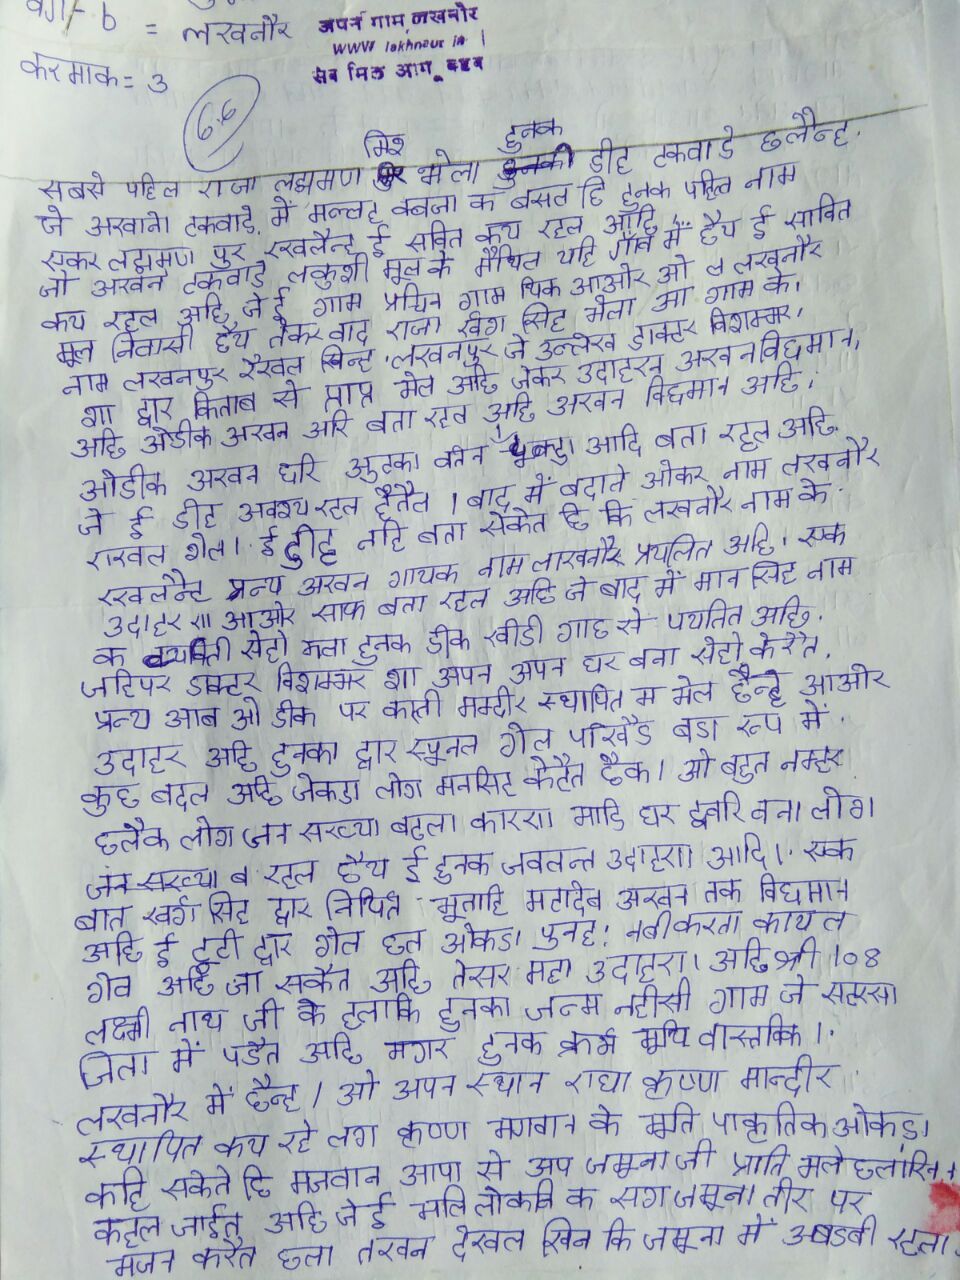 वर्ग - b = लखनौर
अपन गाम लखनौर
www lakhnaur in
सब मिल आगू बढब
केरमाक = 3
6.6
सबसे पहिल राजा लक्षमण मिश्र भेला हुनक डीह टकवाडे छलैन्ह.
जे अखाने टकवाडे. में मल्लह कबजा क बसल छि हुनक पहिल नाम
एकर लक्षमण पुर रखलैन्ह ई सवित कय रहल अछि
जो अखन टकवाडे लकुशी मूल के मैथिल यहि गाँव में हैथ ई सावित
कय रहल अछि जे ई गाम प्रचिन गाम थिक आओर ओ ल लखनौर
मूल निवासी हैथ तेकर वाद राजा खंग सिंह मेला आ गाम के।
नाम लखनपुर रखल खिन्ह. लखनपुर जे उल्लेख डाक्टर विशम्भर.
शा द्वार किताब से प्राप्त मेल अछि जेकर उदाहरन अखन विद्यमान.
अछि ओडीक अखन अरि बता रहल अछि अखन विद्यमान अछि.
ओडीक अखन छरि झुटका वर्तन आदि बता रहल अछि.
जे ई डीह अवश्य रहल हैतैत । बाद में बदाते ओकर नाम लखनौर
राखल गेल। ई डीह नहि बता सकैत छि कि लखनौर नाम के
रखलैन्ह प्रन्य अखन गायक नाम लाखनौर प्रचलित अछि। एक
उदाहरण आओर साफ बता रहल अछि जे बाद में मान सिंह नाम
क व्यक्ती सेहो मेला हुनक डीक खीडी गाछ से पचतित अछि.
जहिपर डाक्टर विशम्भर शा अपन अपन घर बना सेहो केरेते.
प्रन्य आब ओ डीक पर काली मन्दीर स्थापित म मेल छैन्ह आओर
उदाहर अछि हुनका द्वार खुनल गेल पोखैड बडा रूप में.
कुछ बदल अछि जेकडा लोग मनसिह केहैत छैक। ओ बहुत नम्हर
छलैक लोग जन संख्या बढला कारण माटि घर द्वरि बना लोग
जन संख्या ब रहल छैथ ई हुनक जवलन्त उदाहरण आदि। एक
बात खर्ग सिंह द्वार निर्मित भूताहि महादेव अखन तक विद्यमान
अछि ई टूटी द्वार गेल छल ओकडा पुनह: नबीकरता कायल
गेव अछि जा सकैत अछि तेसर महा उदाहरण अछि श्री 108
लक्ष्मी नाथ जी के हलाकि हुनका जन्म नहीसी गाम जे सहरसा
जिला में पडैत अछि मगर हुनक कर्म भूमि वास्तविक।
लखनौर में छैन्ह। ओ अपन स्थान राधा कृष्ण मान्दीर
स्थापित कय रहे लग कृष्ण भगवान के मूर्ति पाकृतिक ओकडा
कहि सकैते छि भगवान आपा से अप जमूना जी प्राप्ति मले छलखिन
कहल जाईत अछि जे ई मलि लोकनि क संग जमूना तीर पर
भजन करैत छला तखन देखल खिन कि जमूना में रहला.